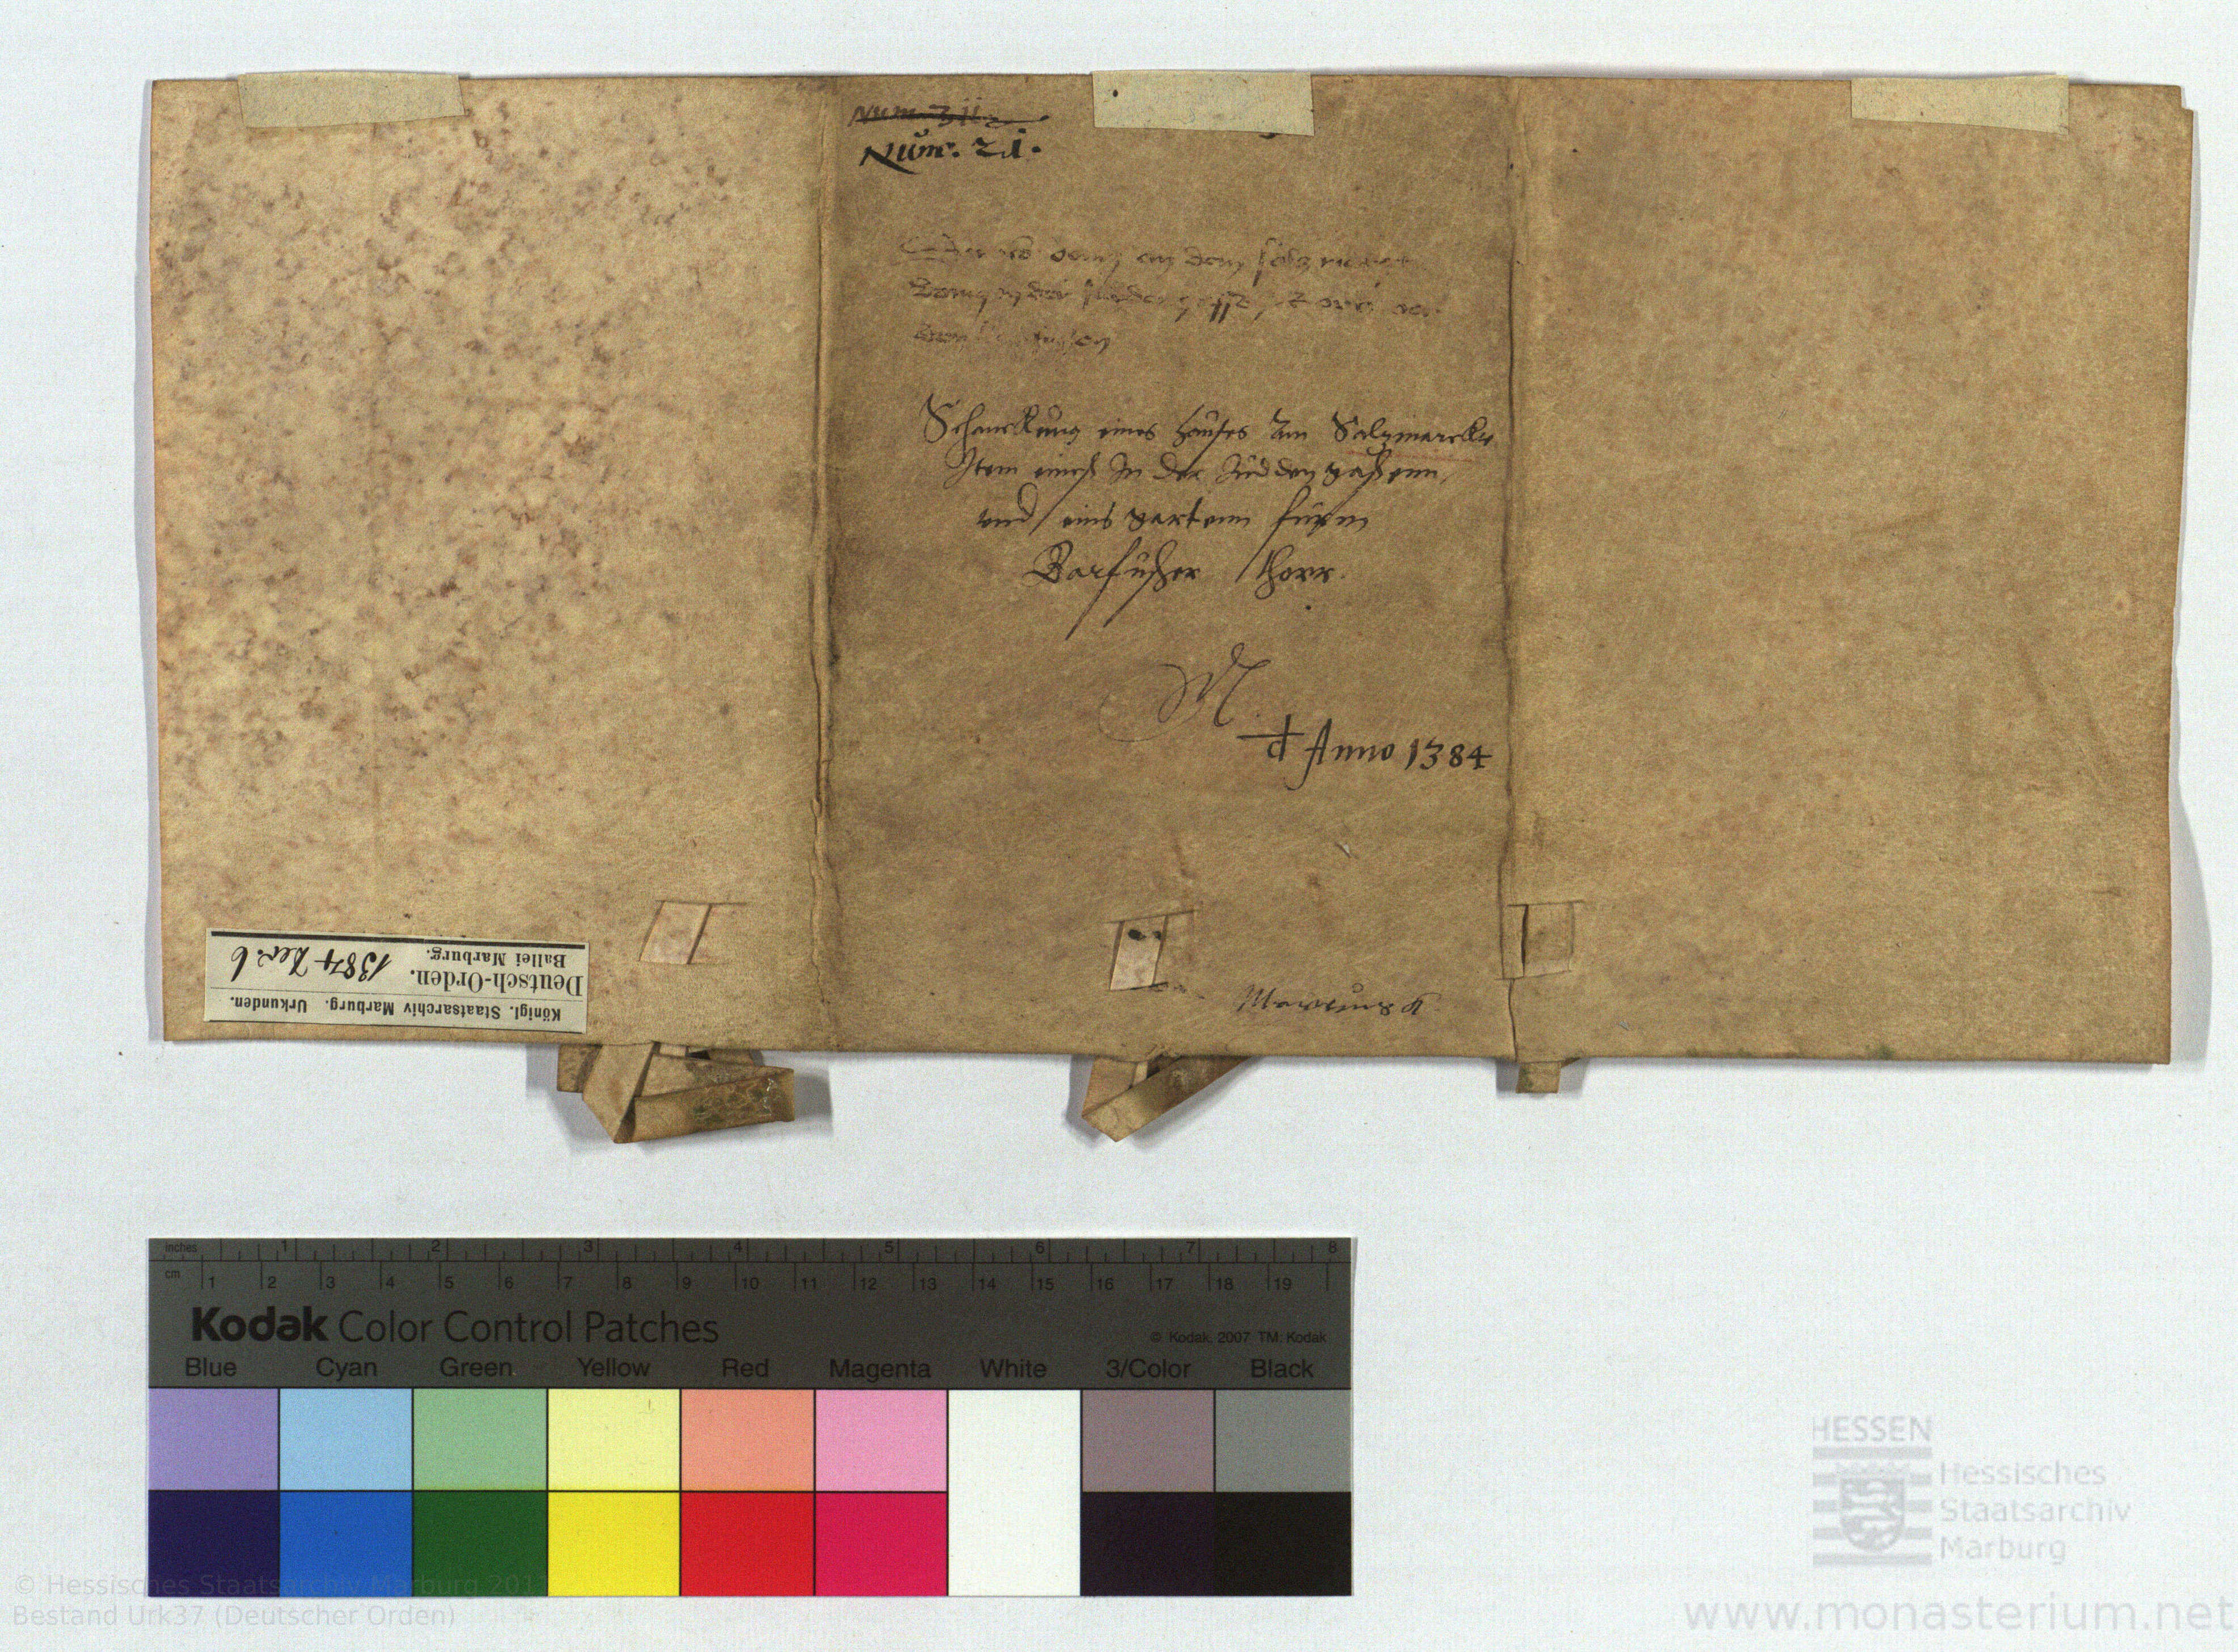 Num. 21.
Schenckung eines hauses am Saltzmarckte
Item eines In der Judden gaßenn,
vnd eins gartenn fürm
Barfüsser thorr.
M
d Anno 1384
Königl. Staatsarchiv Marburg. Urkunden.
Deutsch-Orden.
Ballei Marburg.
1384 Dez. 6
inches 1 2 3 4 5 6 7 8
cm 1 2 3 4 5 6 7 8 9 10 11 12 13 14 15 16 17 18 19
Kodak Color Control Patches
© Kodak, 2007 TM: Kodak
Blue Cyan Green Yellow Red Magenta White 3/Color Black
HESSEN
Hessisches
Staatsarchiv
Marburg
© Hessisches Staatsarchiv Marburg 201
Bestand Urk37 (Deutscher Orden)
www.monasterium.net